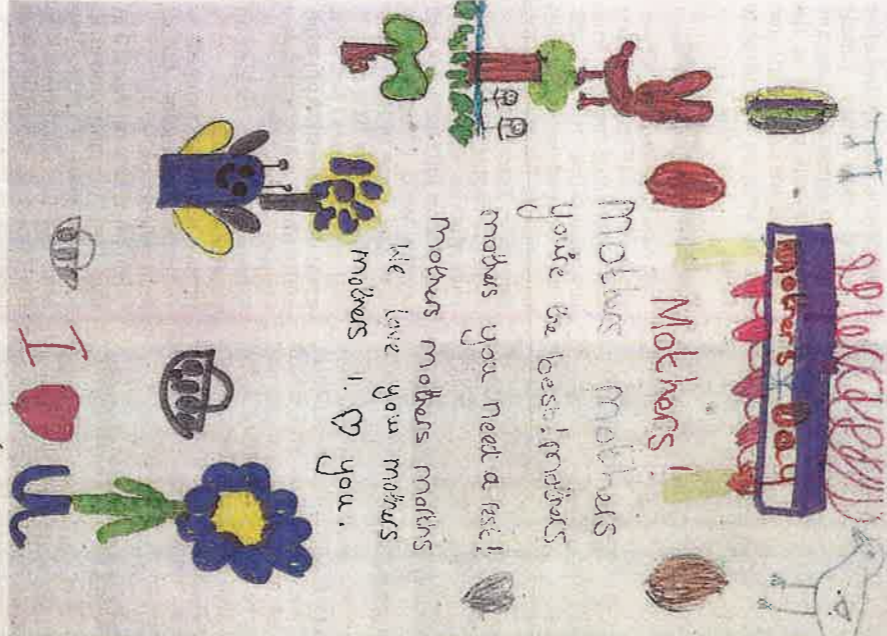 mothers Day
Mothers!
Mothers mothers
you're the best! mothers
mothers you need a rest!
mothers mothers mothrs
We love you mothers
mothers ! ♡ you.
I ♥ u